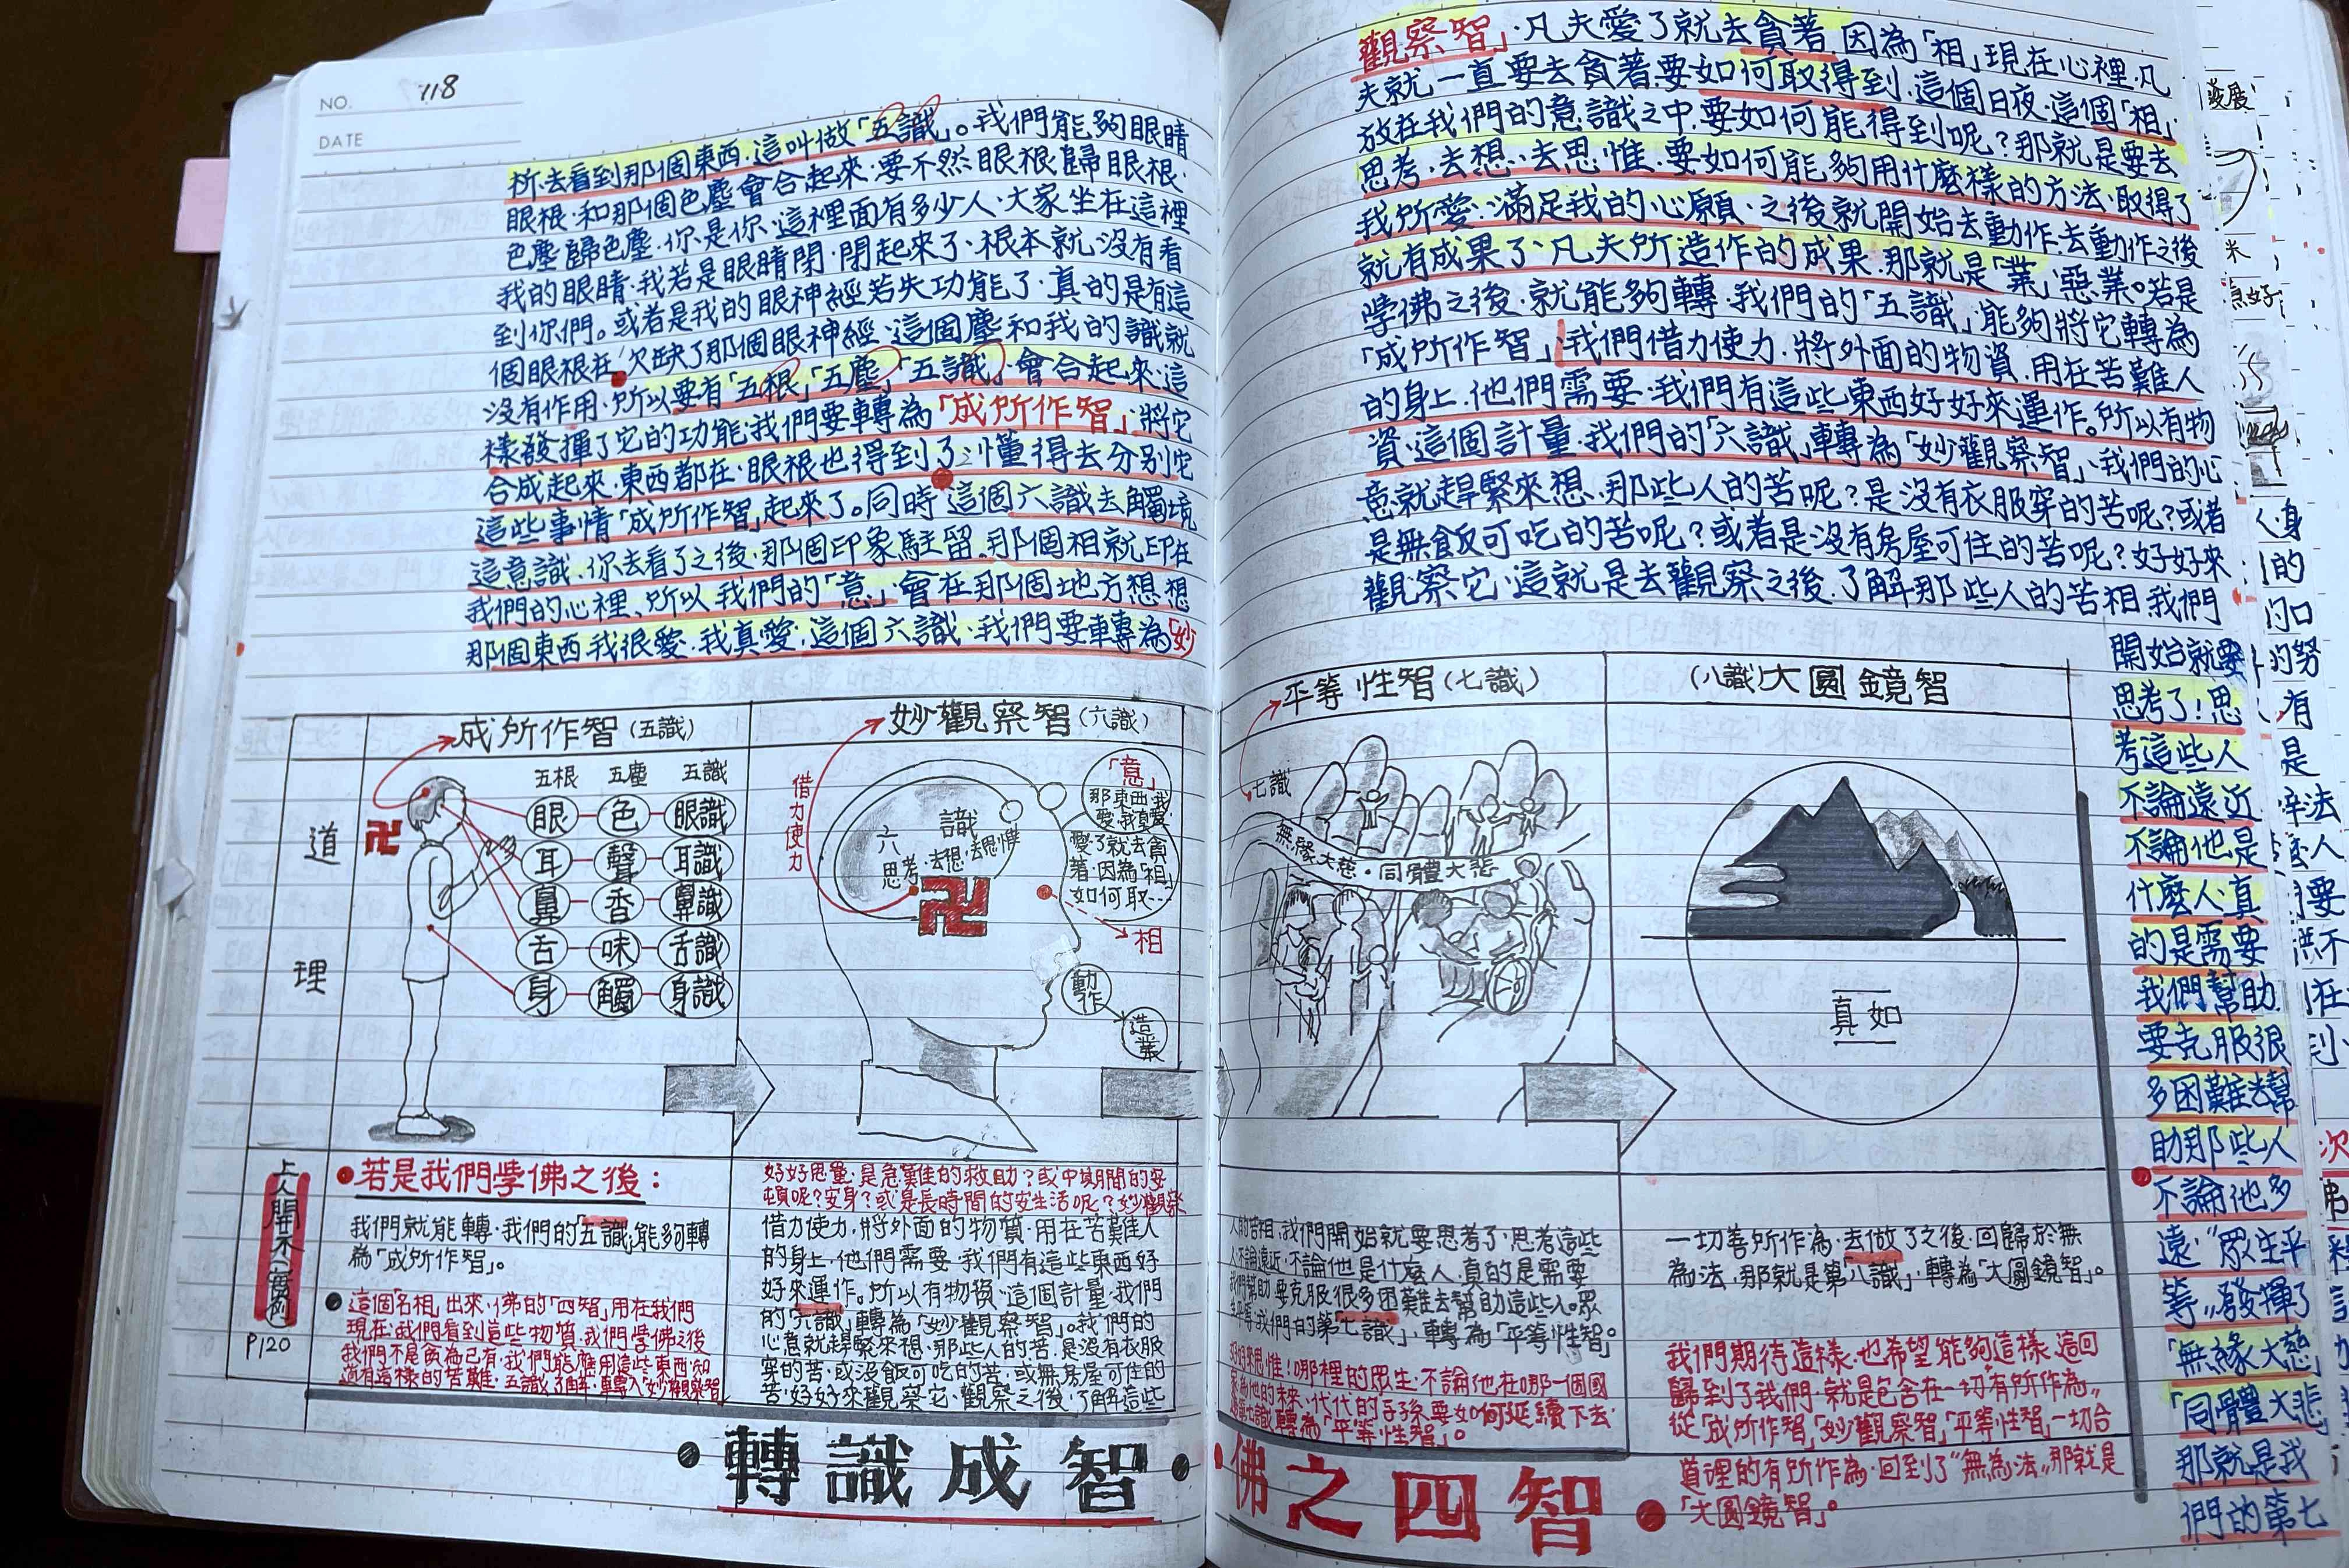 NO. 118
DATE
析·去看到那個東西·這叫做「五識」。我們能夠眼睛
眼根·和那個色塵會合起來·要不然眼根歸眼根·
色塵歸色塵·你是你·這裡面有多少人·大家坐在這裡
我的眼睛·我若是眼睛閉·閉起來了·根本就沒有看
到你們。或者是我的眼神經若失功能了·真的是有這
個眼根在·欠缺了那個眼神經·這個塵和我的識就
沒有作用·所以要有「五根」「五塵」「五識」會合起來·這
樣發揮了它的功能·我們要轉為「成所作智」將它
合成起來·東西都在·眼根也得到了·懂得去分別它
這些事情「成所作智」起來了。同時這個六識去觸境
這意識·你去看了之後·那個印象駐留·那個相就印在
我們的心裡·所以我們的「意」會在那個地方想想
那個東西我很愛·我真愛·這個六識·我們要轉為「妙
觀察智」·凡夫愛了就去貪著·因為「相」現在心裡·凡
夫就一直要去貪著·要如何取得到·這個日夜·這個「相」
放在我們的意識之中·要如何能得到呢？那就是要去
思考·去想·去思惟·要如何能夠用什麼樣的方法·取得了
我所愛·滿足我的心願·之後就開始去動作·去動作之後
就有成果了·凡夫所造作的成果·那就是「業」惡業。若是
學佛之後·就能夠轉·我們的「五識」能夠將它轉為
「成所作智」·我們借力使力·將外面的物資·用在苦難人
的身上·他們需要·我們有這些東西好好來運作。所以有物
資·這個計量·我們的「六識」轉為「妙觀察智」·我們的心
意就趕緊來想·那些人的苦呢？是沒有衣服穿的苦呢？或者
是無飯可吃的苦呢？或者是沒有房屋可住的苦呢？好好來
觀察它·這就是去觀察之後·了解那些人的苦相·我們
開始就要
思考了！思
考這些人
不論遠近
不論他是
什麼人·真
的是需要
我們幫助
要克服很
多困難去幫
助那些人
不論他多
遠·"眾生平
等"·發揮了
「無緣大慈」
「同體大悲」
那就是我
們的第七
道理
成所作智(五識)
五根 五塵 五識
眼 色 眼識
耳 聲 耳識
鼻 香 鼻識
舌 味 舌識
身 觸 身識
卍
妙觀察智(六識)
借力使力
六識
思考·去想·去思惟
卍
「意」
那東西·我
愛·我真愛·
愛了就去貪
著·因為「相」
如何取---
相
動作
造業
平等性智(七識)
七識
無緣大慈·同體大悲
(八識)大圓鏡智
真如
上人開示舉例
P120
若是我們學佛之後：
我們就能轉·我們的「五識」能夠轉
為「成所作智」。
這個「名相」出來·佛的「四智」用在我們
現在·我們看到這些物質·我們學佛之後
我們不是貪為己有·我們能應用這些東西·知
道有這樣的苦難·五識了解·轉入「妙觀察智」
好好思量·是急難的救助？或中期間的安
頓呢？安身？或是長時間的安生活呢？妙觀察
借力使力·將外面的物質·用在苦難人
的身上·他們需要·我們有這些東西好
好來運作。所以有物資·這個計量·我們
的「六識」轉為「妙觀察智」。我們的
心意就趕緊來想·那些人的苦·是沒有衣服
穿的苦·或沒飯可吃的苦·或無房屋可住的
苦·好好來觀察它·觀察之後·了解這些
人的苦相·我們開始就要思考了·思考這些
人不論遠近·不論他是什麼人·真的是需要
我們幫助·要克服很多困難去幫助這些人。眾
生平等·我們的第「七識」·轉為「平等性智」。
好好思惟！哪裡的眾生·不論他在哪一個國
家為他的未來·代代的子孫要如何延續下去·
這第七識轉為「平等性智」。
一切善所作為·去做了之後·回歸於無
為法·那就是第「八識」·轉為「大圓鏡智」。
我們期待這樣·也希望能夠這樣·這回
歸到了我們·就是包含在一切有所作為"
從「成所作智」「妙觀察智」「平等性智」一切合
道理的有所作為·回到了"無為法"那就是
「大圓鏡智」。
轉識成智
佛之四智